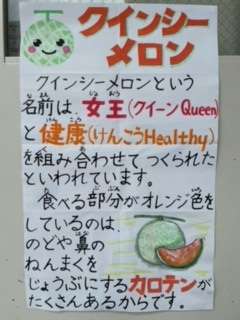 クインシー
メロン
クインシーメロンという
名前は、女王(クイーンQueen)
と健康(けんこうHealthy)
を組み合わせてつくられた
といわれています。
食べる部分がオレンジ色を
しているのは、
のどや鼻の
ねんまくを
じょうぶにするカロテンが
たくさんあるからです。